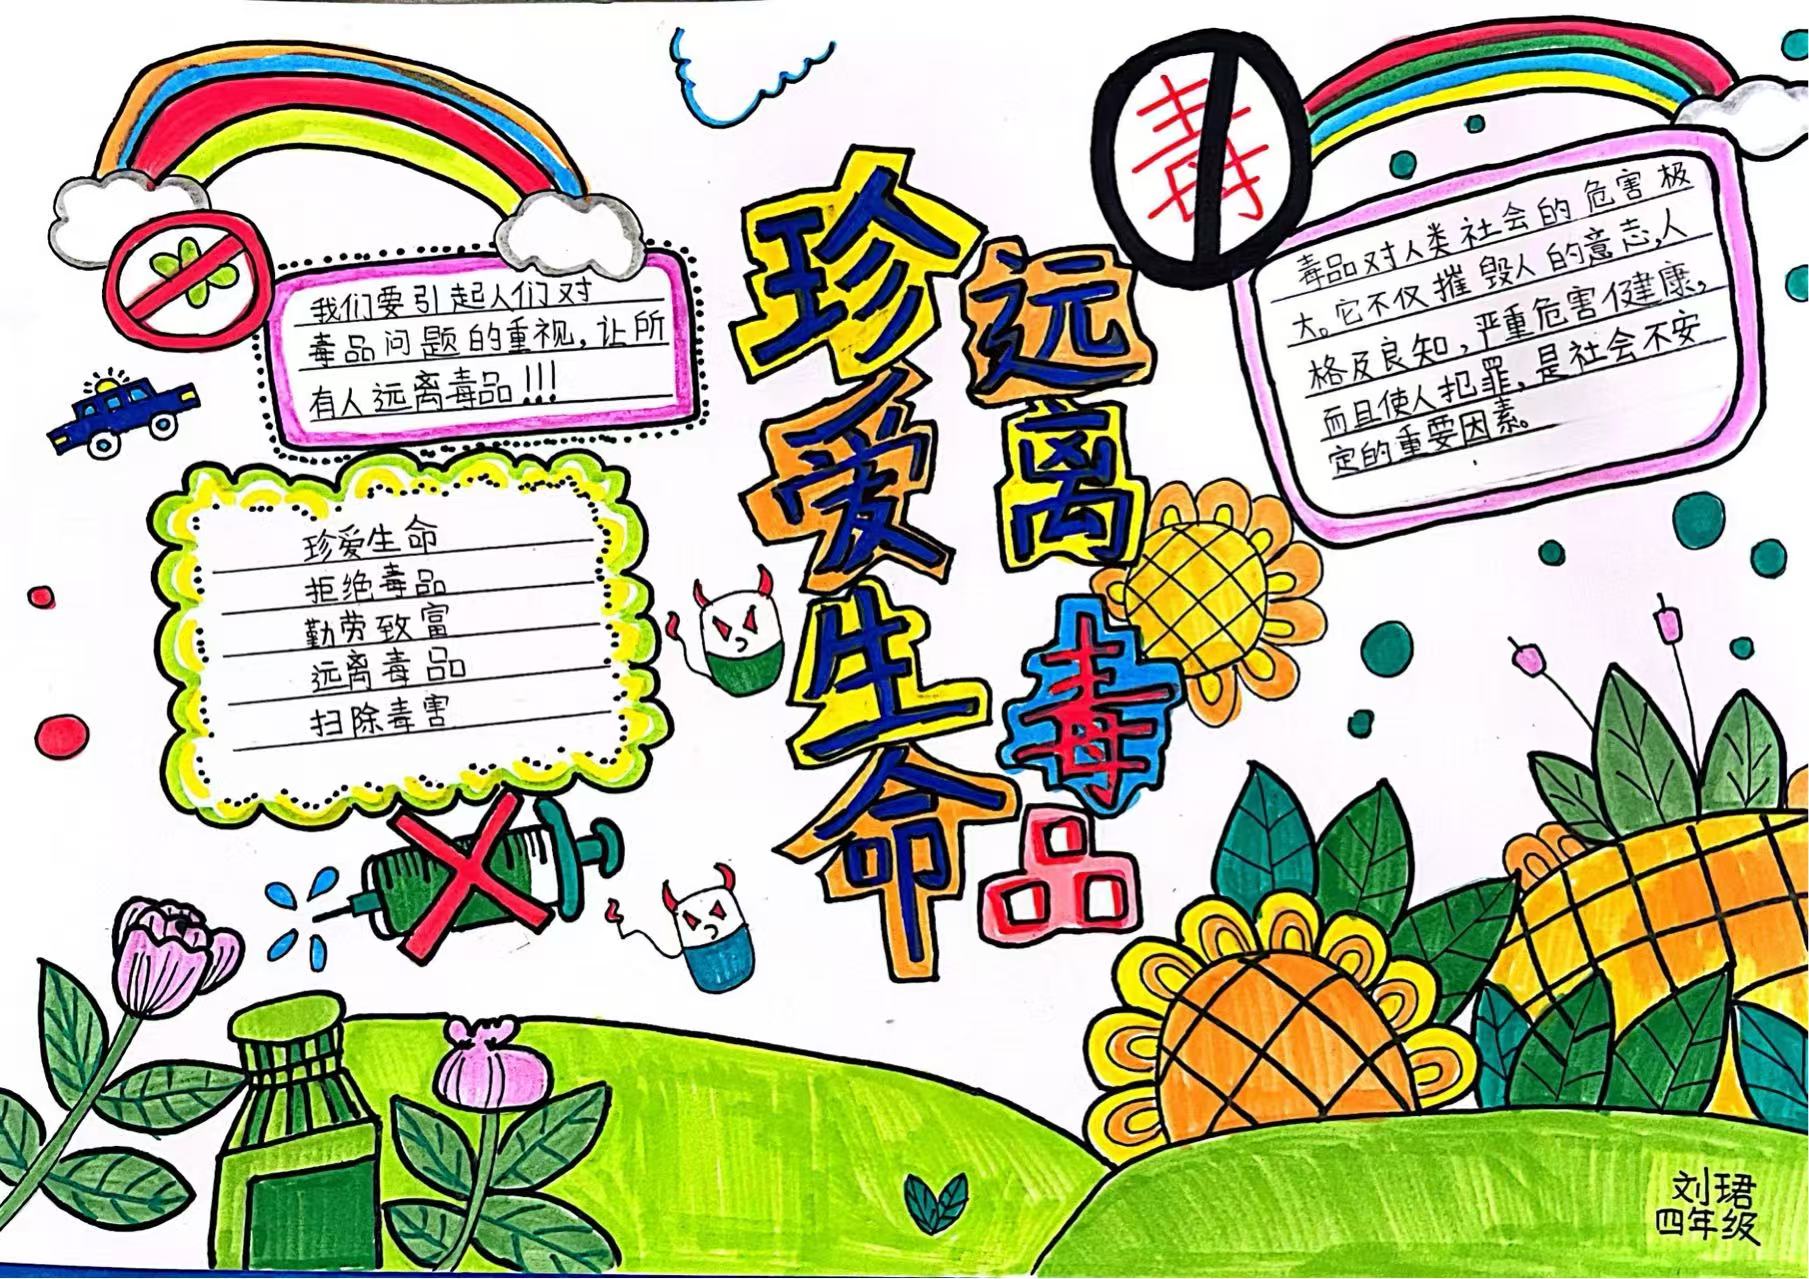 珍爱生命
远离毒品
毒
我们要引起人们对
毒品问题的重视,让所
有人远离毒品!!!
珍爱生命
拒绝毒品
勤劳致富
远离毒品
扫除毒害
毒品对人类社会的危害极
大。它不仅摧毁人的意志,人
格及良知,严重危害健康,
而且使人犯罪,是社会不安
定的重要因素。
刘珺
四年级